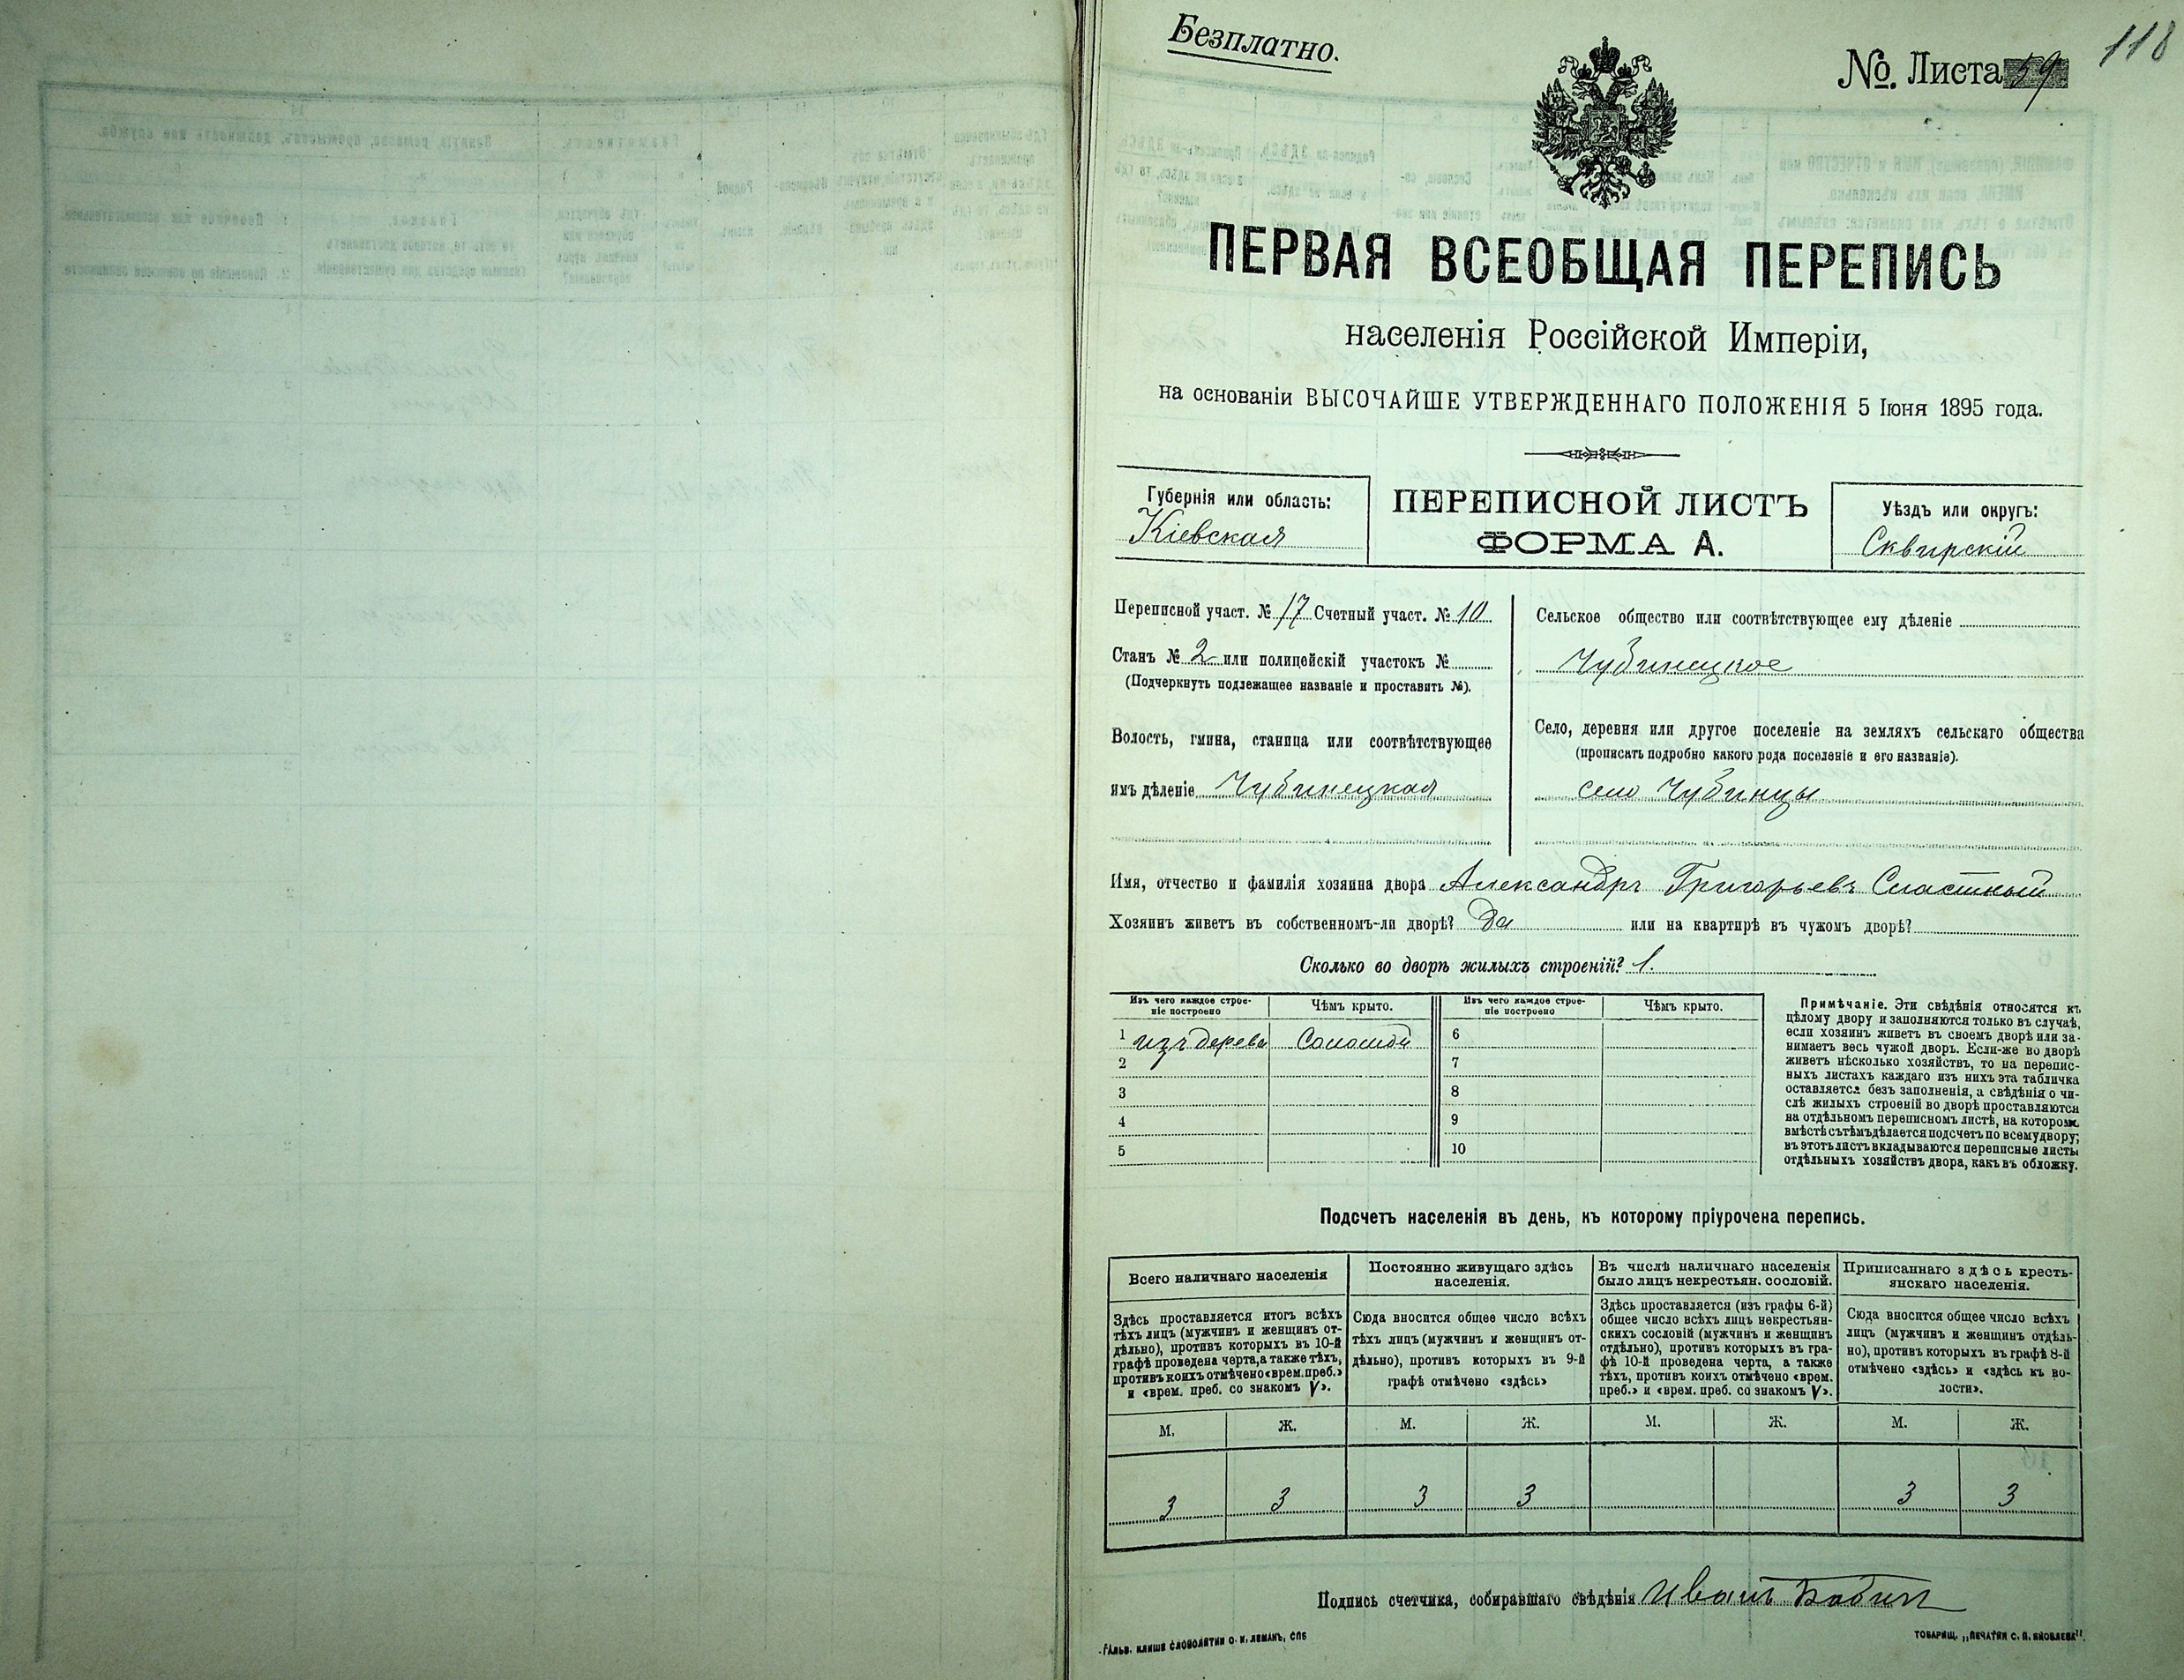 Безплатно.
118
№. Листа 59
ПЕРВАЯ ВСЕОБЩАЯ ПЕРЕПИСЬ
населенія Россійской Имперіи,
на основаніи ВЫСОЧАЙШЕ УТВЕРЖДЕННАГО ПОЛОЖЕНІЯ 5 Іюня 1895 года.
Губернія или область:
Кіевская
ПЕРЕПИСНОЙ ЛИСТЪ
ФОРМА А.
Уѣздъ или округъ:
Сквирскій
Переписной участ. № 17 Счетный участ. № 10
Станъ № 2 или полицейскій участокъ №
(Подчеркнуть подлежащее названіе и проставить №).
Волость, гмина, станица или соотвѣтствующее
имъ дѣленіе Чубинецкая
Сельское общество или соотвѣтствующее ему дѣленіе
Чубинецкое
Село, деревня или другое поселеніе на земляхъ сельскаго общества
(прописать подробно какого рода поселеніе и его названіе).
село Чубинцы
Имя, отчество и фамилія хозяина двора Александръ Григорьевъ Сластный
Хозяинъ живетъ въ собственномъ-ли дворѣ? Да или на квартирѣ въ чужомъ дворѣ?
Сколько во дворѣ жилыхъ строеній? 1.
Изъ чего каждое строе-
ніе построено
Чѣмъ крыто.
Изъ чего каждое строе-
ніе построено
Чѣмъ крыто.
1 изъ дерева Соломой 6
2 7
3 8
4 9
5 10
Примѣчаніе. Эти свѣдѣнія относятся къ
цѣлому двору и заполняются только въ случаѣ,
если хозяинъ живетъ въ своемъ дворѣ или за-
нимаетъ весь чужой дворъ. Если-же во дворѣ
живетъ нѣсколько хозяйствъ, то на перепис-
ныхъ листахъ каждаго изъ нихъ эта табличка
оставляется безъ заполненія, а свѣдѣнія о чи-
слѣ жилыхъ строеній во дворѣ проставляются
на отдѣльномъ переписномъ листѣ, на которомъ
вмѣстѣ съ тѣмъ дѣлается подсчетъ по всему двору;
въ этотъ листъ вкладываются переписные листы
отдѣльныхъ хозяйствъ двора, какъ въ обложку.
Подсчетъ населенія въ день, къ которому пріурочена перепись.
Всего наличнаго населенія
Здѣсь проставляется итогъ всѣхъ
тѣхъ лицъ (мужчинъ и женщинъ от-
дѣльно), противъ которыхъ въ 10-й
графѣ проведена черта, а также тѣхъ,
противъ коихъ отмѣчено «врем. преб.»
и «врем. преб. со знакомъ V».
Постоянно живущаго здѣсь
населенія.
Сюда вносится общее число всѣхъ
тѣхъ лицъ (мужчинъ и женщинъ от-
дѣльно), противъ которыхъ въ 9-й
графѣ отмѣчено «здѣсь»
Въ числѣ наличнаго населенія
было лицъ некрестьян. сословій.
Здѣсь проставляется (изъ графы 6-й)
общее число всѣхъ лицъ некрестьян-
скихъ сословій (мужчинъ и женщинъ
отдѣльно), противъ которыхъ въ гра-
фѣ 10-й проведена черта, а также
тѣхъ, противъ коихъ отмѣчено «врем.
преб.» и «врем. преб. со знакомъ V».
Приписаннаго здѣсь кресть-
янскаго населенія.
Сюда вносится общее число всѣхъ
лицъ (мужчинъ и женщинъ отдѣль-
но), противъ которыхъ въ графѣ 8-й
отмѣчено «здѣсь» и «здѣсь къ во-
лости».
М. Ж. М. Ж. М. Ж. М. Ж.
3 3 3 3 3 3
Подпись счетчика, собиравшаго свѣдѣнія Иванъ
ГАЛЬВ. КЛИШЕ СЛОВОЛИТНИ О. И. ЛЕМАНЪ, СПБ
ТОВАРИЩ. „ПЕЧАТНИ С. П. ЯКОВЛЕВА".